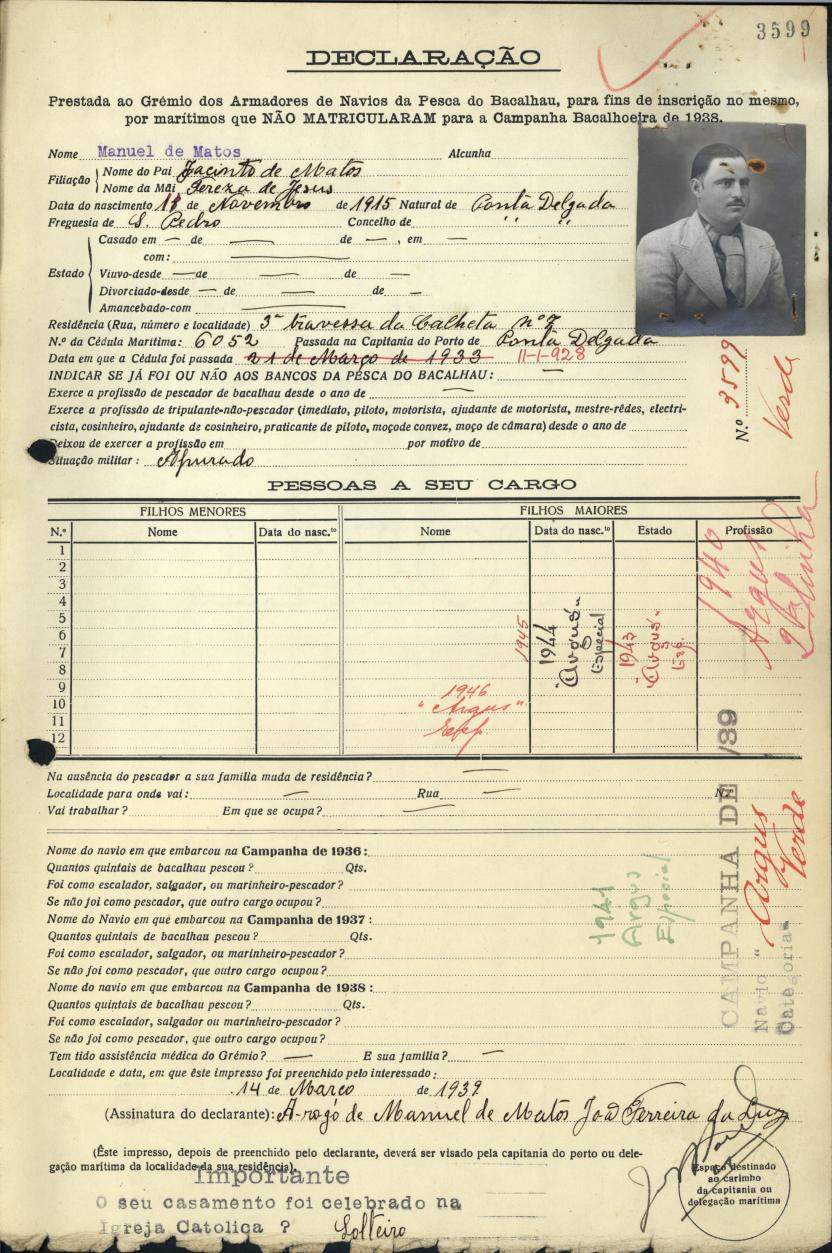 3599
DECLARAÇÃO
Prestada ao Grémio dos Armadores de Navios da Pesca do Bacalhau, para fins de inscrição no mesmo,
por marítimos que NÃO MATRICULARAM para a Campanha Bacalhoeira de 1938.
Nome Manuel de Matos Alcunha
Filiação
Nome do Pai Jacinto de Matos
Nome da Mãi Tereza de Jesus
Data do nascimento 11 de Novembro de 1915 Natural de Ponta Delgada
Freguesia de S. Pedro Concelho de " "
Estado
Casado em — de — de — , em —
com: —
Viuvo-desde — de — de —
Divorciado-desde — de — de —
Amancebado-com —
Residência (Rua, número e localidade) 3ª travessa da Calheta nº 7
N.º da Cédula Marítima: 6052 Passada na Capitania do Porto de Ponta Delgada
Data em que a Cédula foi passada 21 de Março de 1933 11-1-928
INDICAR SE JÁ FOI OU NÃO AOS BANCOS DA PESCA DO BACALHAU: —
Exerce a profissão de pescador de bacalhau desde o ano de —
Exerce a profissão de tripulante-não-pescador (imediato, piloto, motorista, ajudante de motorista, mestre-rêdes, electri-
cista, cosinheiro, ajudante de cosinheiro, praticante de piloto, moço de convez, moço de câmara) desde o ano de
Deixou de exercer a profissão em por motivo de
Situação militar: Apurado
N.º 3599
Verde
PESSOAS A SEU CARGO
FILHOS MENORES FILHOS MAIORES
N.º Nome Data do nasc.to Nome Data do nasc.to Estado Profissão
1
2
3
4
5
6
7
8
9
10
11
12
1946
"Argus"
Esp.
1945
1944
"Argus"
Especial
1943
"Argus"
Esp.
1940
Argus
2ª linha
Na ausência do pescador a sua família muda de residência? —
Localidade para onde vai: — Rua — N.º
Vai trabalhar? Em que se ocupa? —
Nome do navio em que embarcou na Campanha de 1936:
Quantos quintais de bacalhau pescou? Qts.
Foi como escalador, salgador, ou marinheiro-pescador?
Se não foi como pescador, que outro cargo ocupou?
Nome do Navio em que embarcou na Campanha de 1937:
Quantos quintais de bacalhau pescou? Qts.
Foi como escalador, salgador, ou marinheiro-pescador?
Se não foi como pescador, que outro cargo ocupou?
Nome do navio em que embarcou na Campanha de 1938:
Quantos quintais de bacalhau pescou? Qts.
Foi como escalador, salgador ou marinheiro-pescador?
Se não foi como pescador, que outro cargo ocupou?
1941
Argus
Especial
CAMPANHA DE /39
Navio "Argus
Categoria Verde
Tem tido assistência médica do Grémio? — E sua família? —
Localidade e data, em que êste impresso foi preenchido pelo interessado:
14 de Março de 1939
(Assinatura do declarante): A rogo de Manuel de Matos João Ferreira da Luz
(Êste impresso, depois de preenchido pelo declarante, deverá ser visado pela capitania do porto ou dele-
gação marítima da localidade da sua residência).
Espaço destinado
ao carimbo
da capitania ou
delegação marítima
Importante
O seu casamento foi celebrado na
Igreja Catolica ? Solteiro